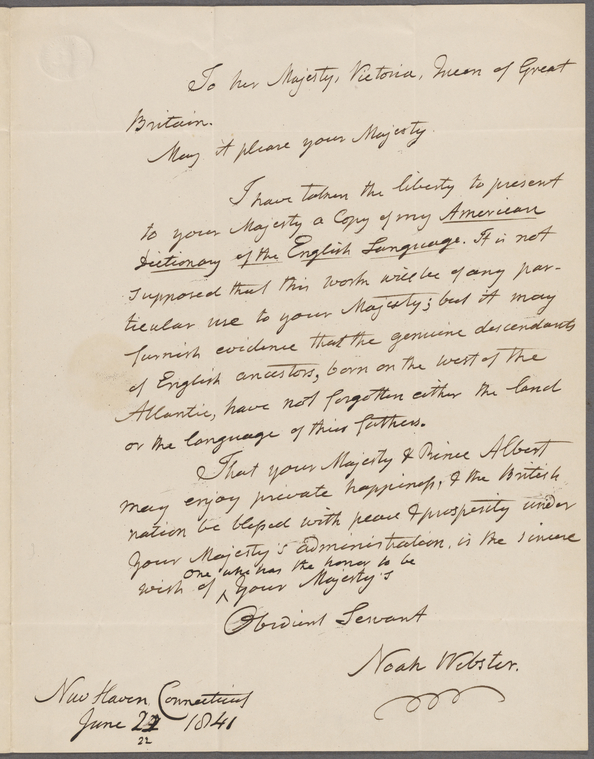 To her Majesty, Victoria, Queen of Great
Britain.
May it please your Majesty.
I have taken the liberty to present
to your Majesty a Copy of my American
Dictionary of the English Language. It is not
supposed that this work will be of any par-
ticular use to your Majesty; but it may
furnish evidence that the genuine descendants
of English ancestors, born on the west of the
Atlantic, have not forgotten either the land
or the language of their fathers.
That your Majesty & Prince Albert
may enjoy private happiness, & the British
nation be blessed with peace & prosperity under
your Majesty's administration, is the sincere
one who has the honor to be
wish of ^ your Majesty's
Obedient Servant
Noah Webster.
New Haven Connecticut
June 22 1841
22